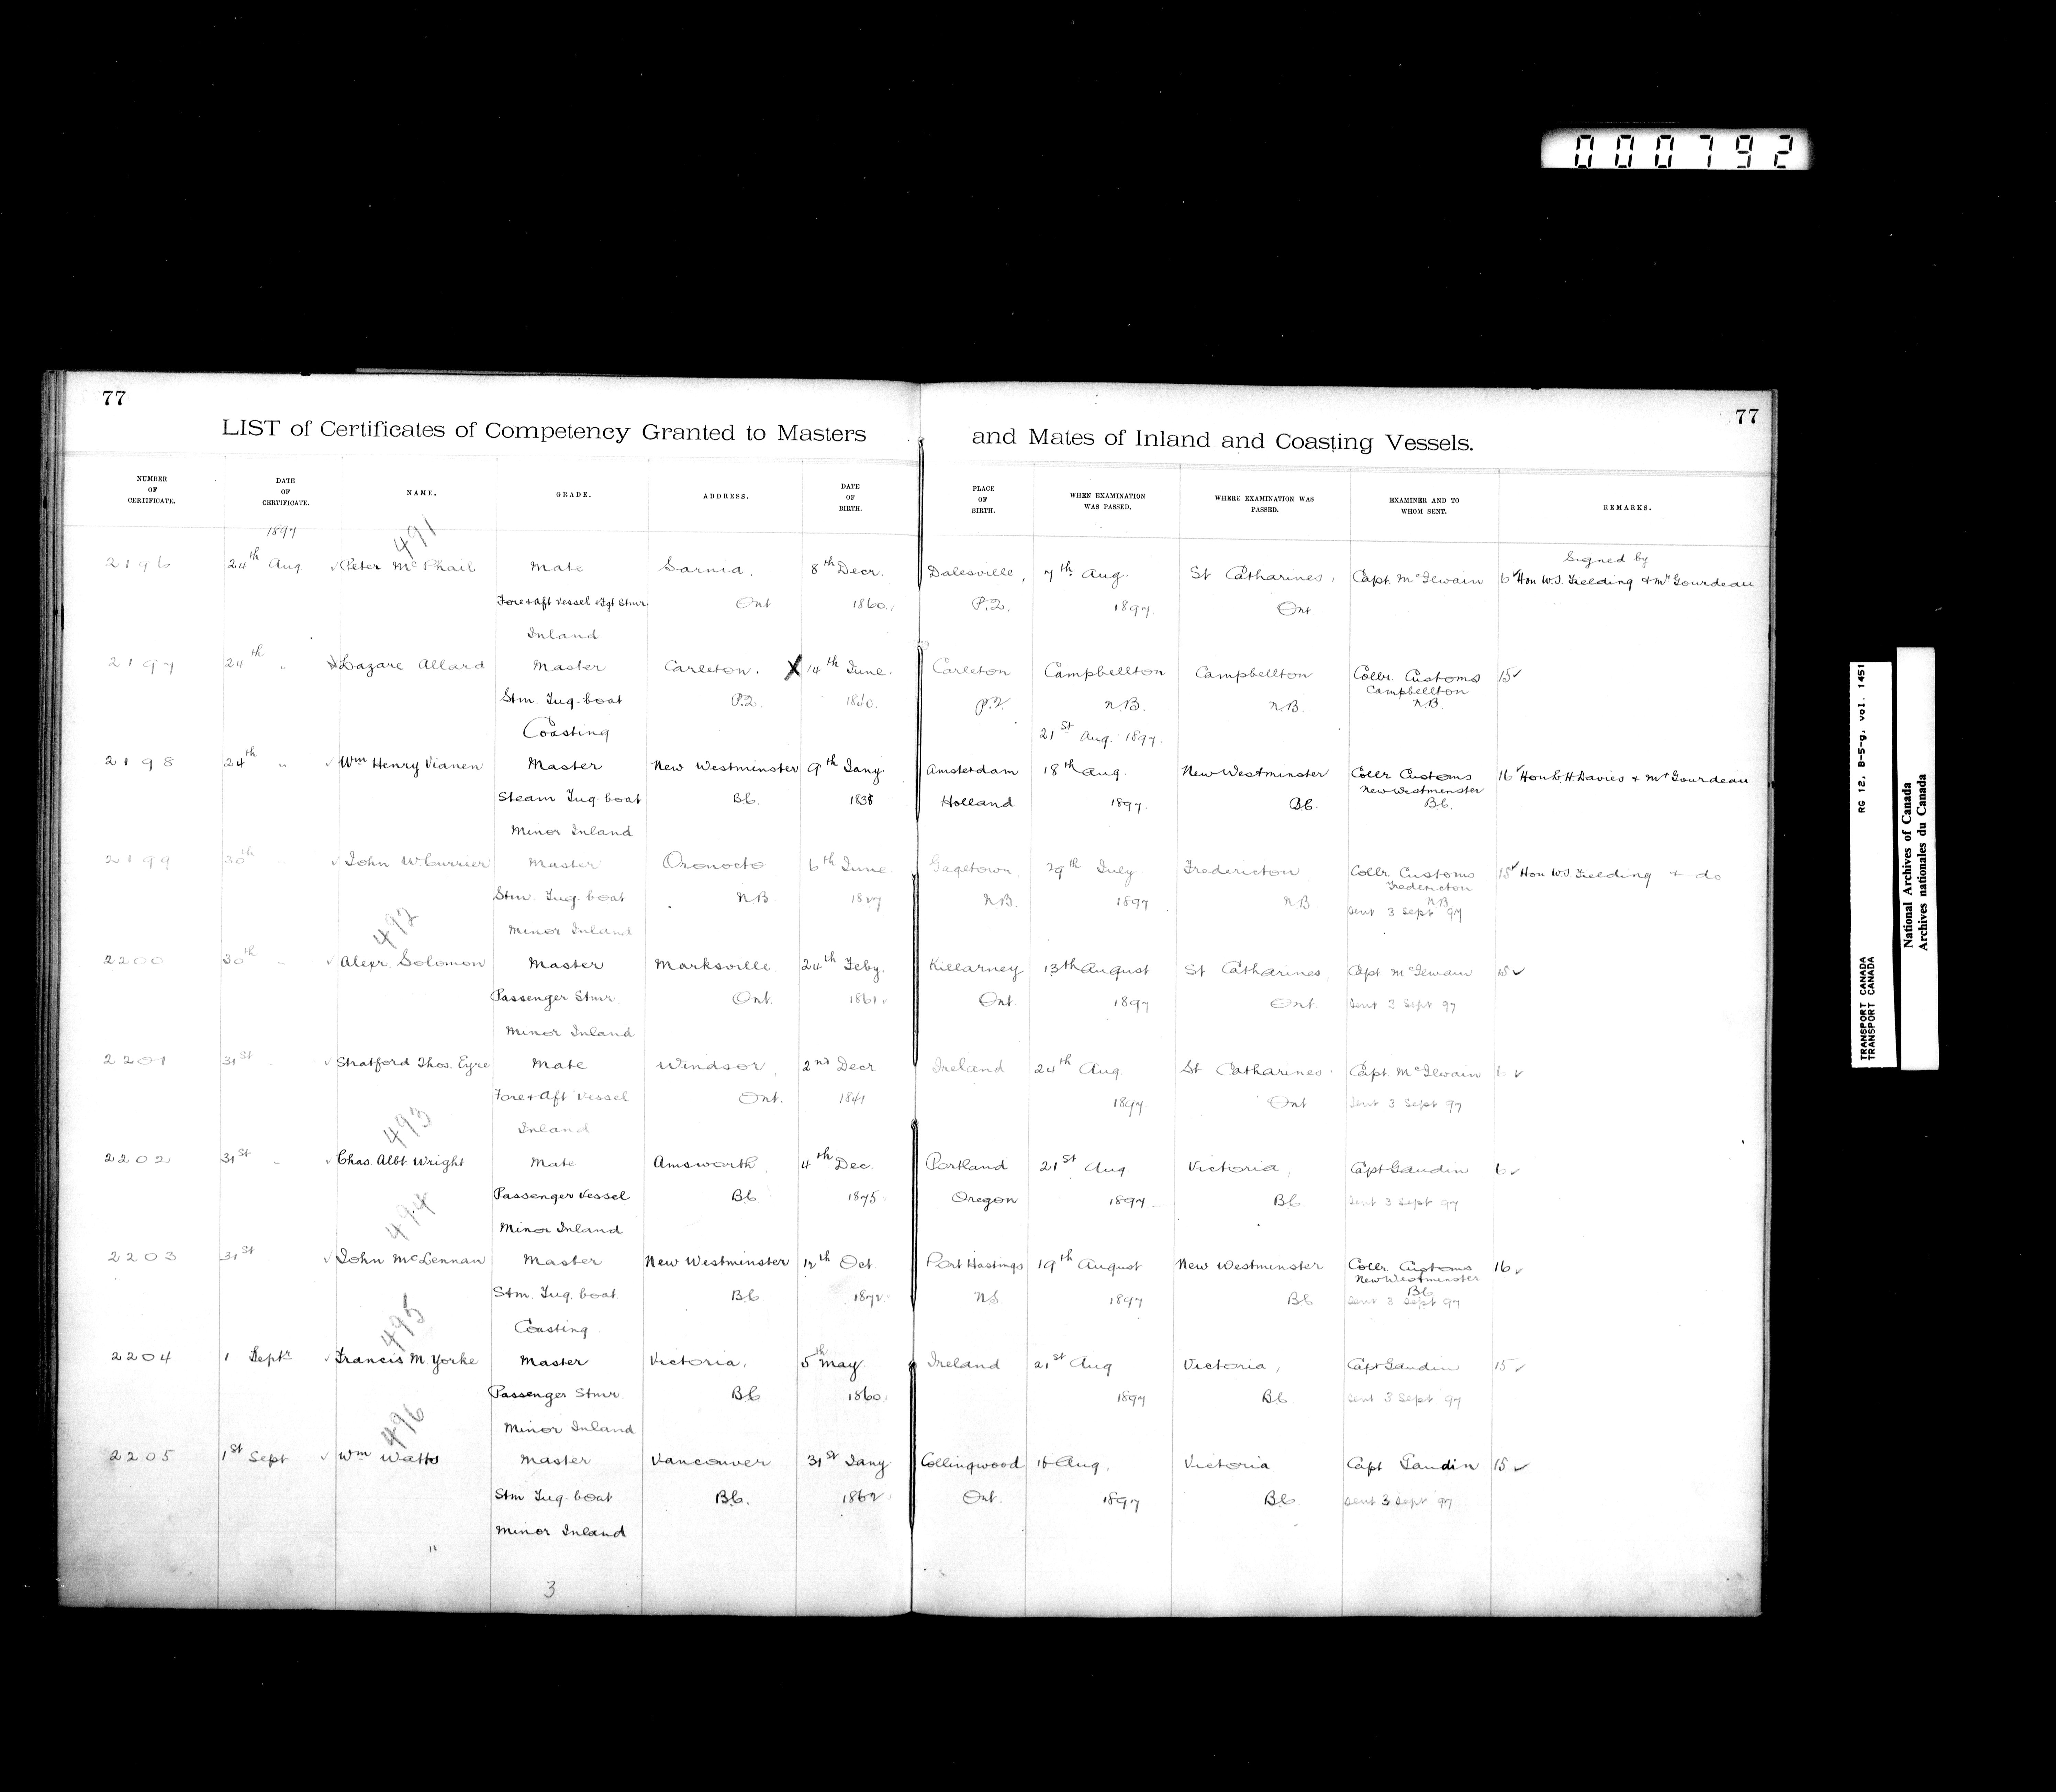 000792
77
77
LIST of Certificates of Competency Granted to Masters and Mates of Inland and Coasting Vessels.
NUMBER OF CERTIFICATE. DATE OF CERTIFICATE. NAME. GRADE. ADDRESS. DATE OF BIRTH. PLACE OF BIRTH. WHEN EXAMINATION WAS PASSED. WHERE EXAMINATION WAS PASSED. EXAMINER AND TO WHOM SENT. REMARKS.
1897 491
Signed by
2196 24th Aug Peter McPhail Mate Sarnia, 8th Decr. Dalesville, 7th Aug. St Catharines, Capt. McIlwain 6 Hon W.S. Fielding & Mr Gourdeau
Fore & aft vessel & Fgt Stmr. Ont 1860. P.Q. 1897. Ont
Inland
2197 24th " Lazare Allard Master Carleton. X 14th June. Carleton Campbellton Campbellton Collr. Customs 15
Campbellton
Stm. Tug-boat P.Q. 1840. P.Q. N.B. N.B. N.B.
Coasting 21st Aug. 1897.
2198 24th " Wm Henry Vianen Master New Westminster 9th Jany. Amsterdam 18th Aug. New Westminster Collr Customs 16 Hon L.H. Davies & Mr Gourdeau
New Westminster
Steam Tug-boat BC. 1838 Holland 1897. BC. BC.
Minor Inland
2199 30th " John W Currier Master Oronocto 6th June Gagetown, 29th July Fredericton Collr. Customs 15 Hon W.S Fielding & do
Fredericton
Stm. Tug-boat N.B. N.B. 1897 N.B N.B
sent 3 Sept 97
Minor Inland
492
2200 30th " Alexr. Solomon Master Marksville 24th Feby. Killarney 13th August St Catharines, Capt McIlwain 15
Passenger Stmr. Ont. 1861 Ont 1897 Ont. sent 3 Sept 97
Minor Inland
2201 31st " Stratford Thos. Eyre Mate Windsor, 2nd Decr Ireland 24th Aug. St Catharines Capt McIlwain 6
Fore & Aft Vessel Ont. 1841 1897. Ont sent 3 Sept 97
Inland
493
2202 31st " Chas. Albt Wright Mate Ainsworth, 4th Dec. Portland 21st Aug. Victoria, Capt Gaudin 6
Passenger Vessel BC 1875 Oregon 1897 BC sent 3 Sept 97
Minor Inland
494
2203 31st John McLennan Master New Westminster 12th Oct Port Hastings 19th August New Westminster Collr. Customs 16
New Westminster
BC
Stm. Tug. boat BC 1872. N.S. 1897 BC sent 3 Sept 97
Coasting
495
2204 1 Septr Francis M Yorke Master Victoria, 5th May. Ireland 21st Aug Victoria, Capt Gaudin 15
Passenger Stmr. BC 1860. 1897 BC sent 3 Sept 97
Minor Inland
496
2205 1st Sept Wm Watts Master Vancouver 31st Jany Collingwood 16 Aug. Victoria Capt Gaudin 15
Stm Tug-boat BC. 1862 Ont. 1897 BC sent 3 Sept 97
Minor Inland
"
3
TRANSPORT CANADA RG 12, B-5-g, vol. 1451
TRANSPORT CANADA
National Archives of Canada
Archives nationales du Canada